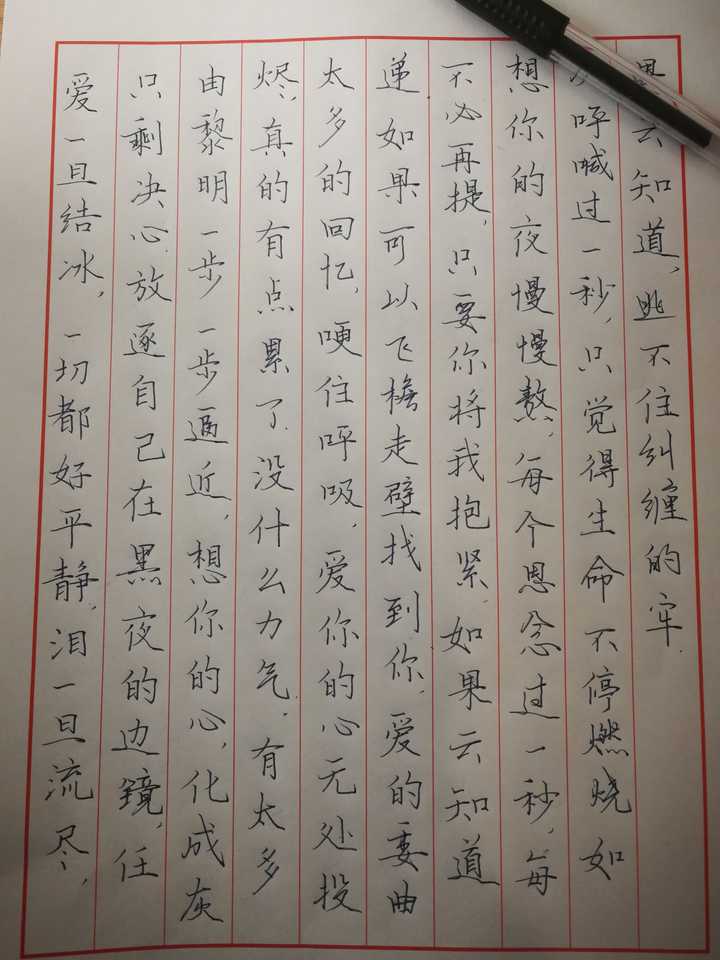 爱一旦结冰,一切都好平静,泪一旦流尽,
只剩决心.放逐自己在黑夜的边镜,任
由黎明一步一步逼近,想你的心,化成灰
烬,真的有点累了.没什么力气.有太多
太多的回忆,哽住呼吸,爱你的心无处投
递如果可以飞檐走壁找到你.爱的委曲
不必再提,只要你将我抱紧.如果云知道
想你的夜慢慢熬,每个恩念过一秒,每
呼喊过一秒,只觉得生命不停燃烧如
果云知道,逃不住纠缠的牢.